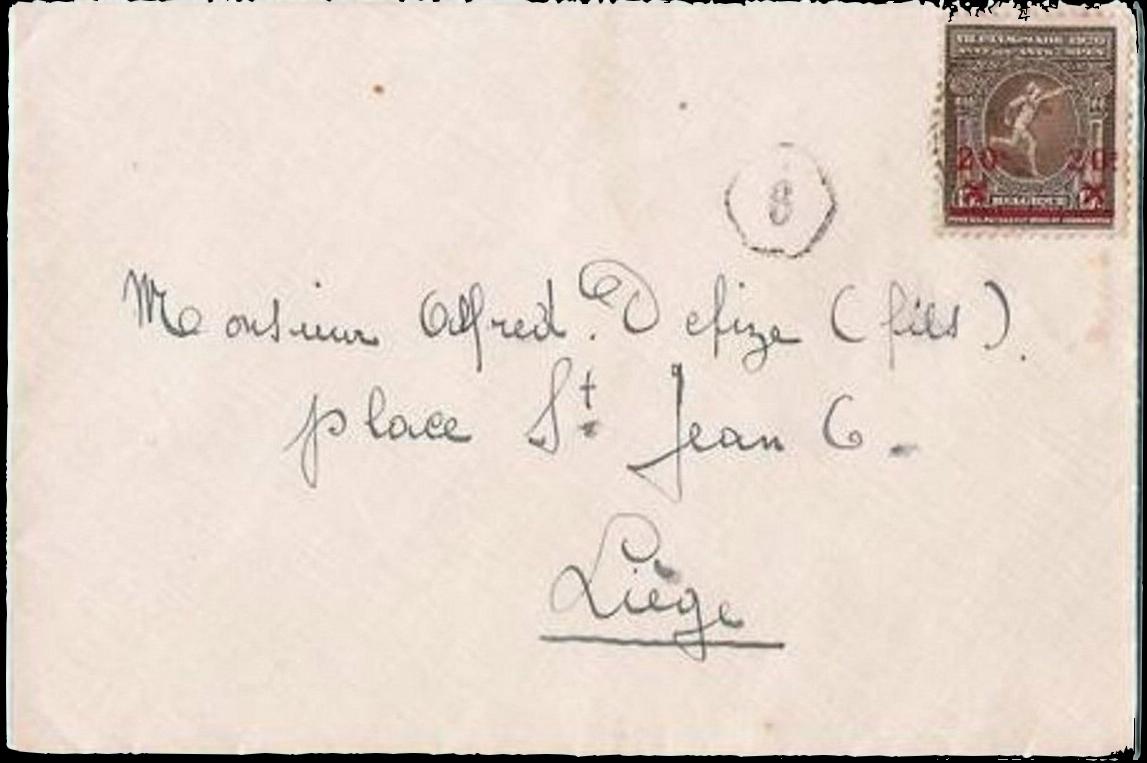 VIIE OLYMPIADE 1920
ANVERS ANTWERPEN
20c 20c
BELGIQUE
8
Monsieur Alfred. Defize (fils).
place St Jean 6.
Liège